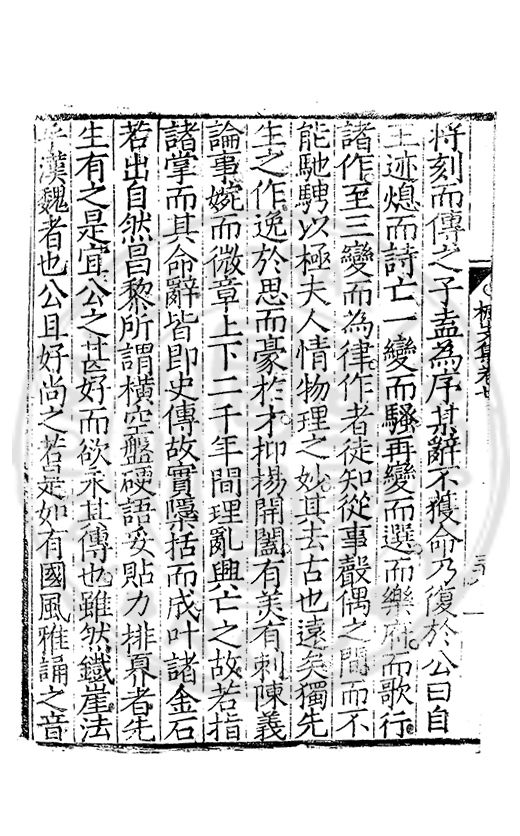 將刻而傳之子盍為序某辭不獲命乃復於公曰自
王迹熄而詩亡一變而騷再變而選而樂府而歌行
諸作至三變而為律作者徒知從事聲偶之間而不
能馳騁以極夫人情物理之妙其去古也遠矣獨先
生之作逸於思而豪於才抑揚開闔有美有刺陳義
論事婉而微章上下二千年間理亂興亡之故若指
諸掌而其命辭皆即史傳故實檃括而成叶諸金石
若出自然昌黎所謂橫空盤硬語妥貼力排奡者先
生有之是宜公之甚好而欲永其傳也雖然鐵崖法
乎漢魏者也公且好尚之若是如有國風雅誦之音